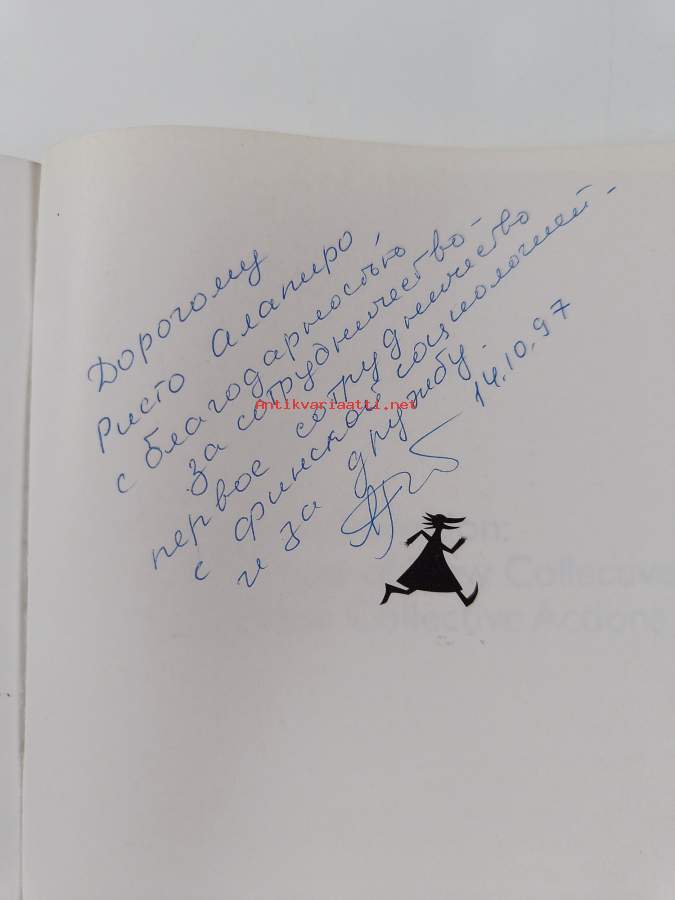 Дорогому
Ристо Алапиро,
с благодарностью
за сотрудничество -
первое сотрудничество
с финской социологией -
и за дружбу.
14.10.97
Antikvariaatti.net
Collective
Collective Actions